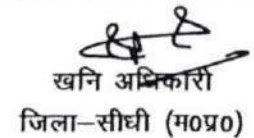 खनि अधिकारी
जिला–सीधी (म0प्र0)